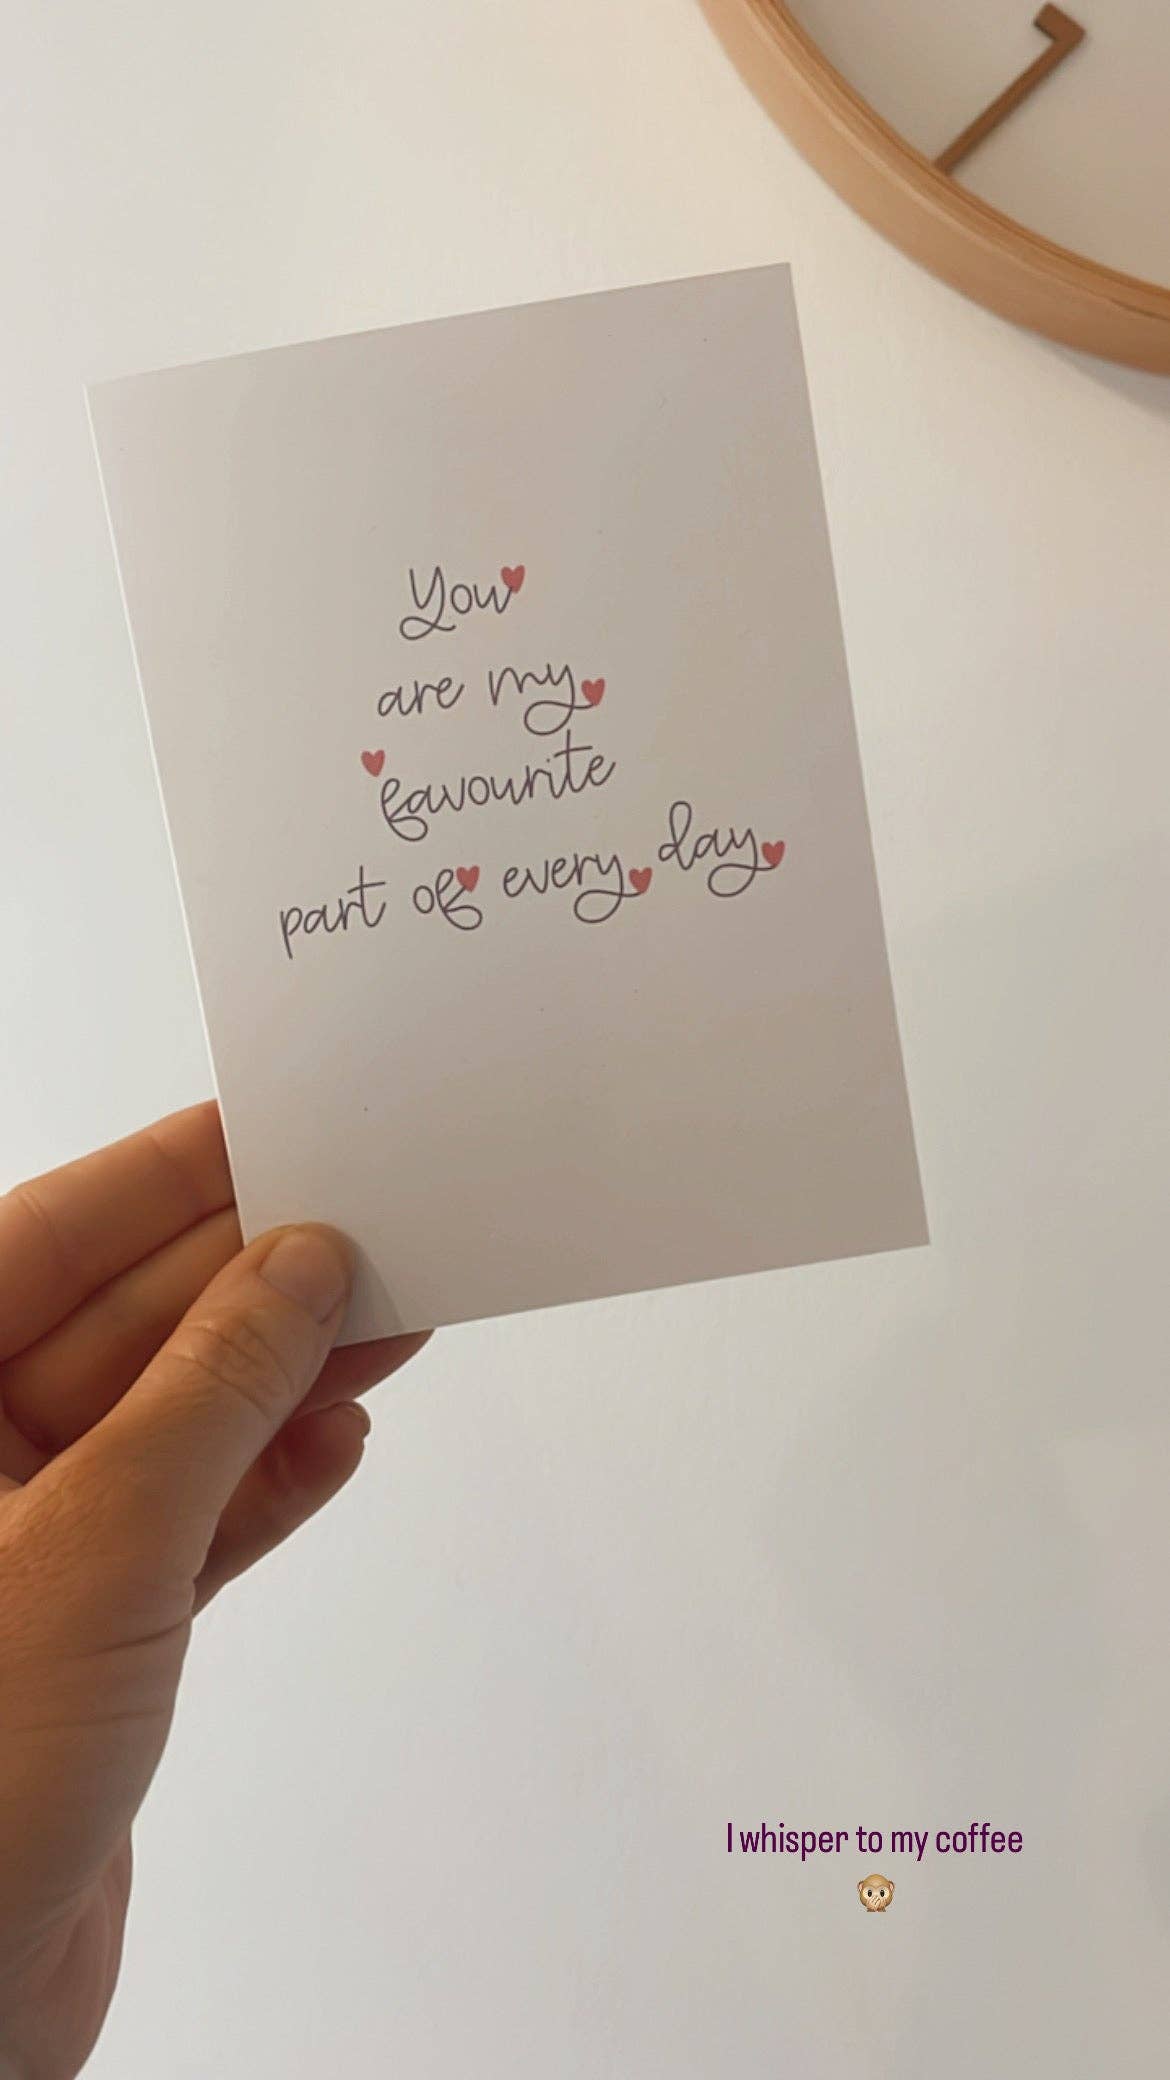 7
You
are my
favourite
part of every day
I whisper to my coffee
🙊